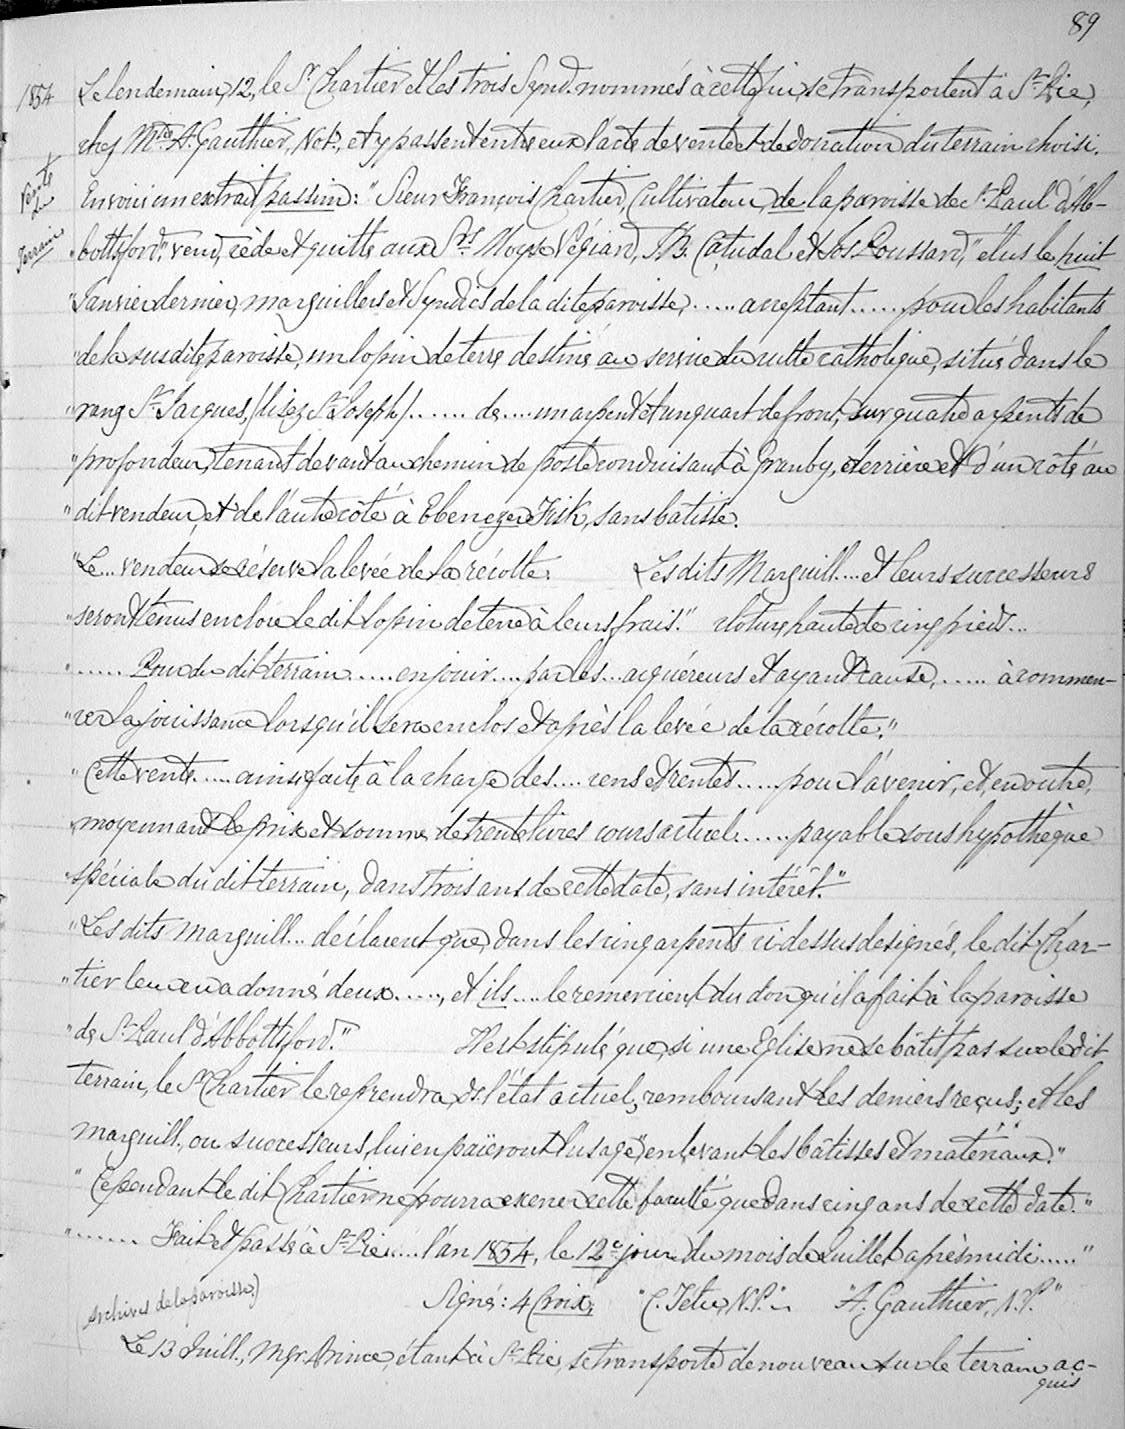 89
1854 Le lendemain, 12, le Sr Chartier et les trois Synd. nommés à cette fin, se transportent à St-Pie,
chez Mtre A. Gauthier, Not., et y passent entre eux l'acte de vente et de donation du terrain choisi.
Vente du Terrain
En voici un extrait passim: "Sieur François Chartier, Cultivateur, de la paroisse de St-Paul d'Ab-
"bottsford," vend, cède et quitte aux Srs Moyse Végiard, J.B. Catudal et Jos Poussard," élus le huit
"Janvier dernier, marguilliers et Syndics de la dite paroisse, ...... acceptant ...... pour les habitants
"de la susdite paroisse, un lopin de terre destiné au service du culte catholique, situé dans le
"rang St-Jacques, (lisez St-Joseph) ....... de .... un arpent et un quart de front, sur quatre arpents de
"profondeur, tenant devant au chemin de poste conduisant à Granby, derrière et d'un côté au
"dit vendeur, et de l'autre côté à Ebenezer Fisk, sans batisse.
"Le ... vendeur se réserve la levée de la récolte. Les dits Marguill .... et leurs successeurs
"seront tenus enclore le dit lopin de terre à leurs frais." cloture haute de cinq pieds ...
"...... Pour du dit terrain ..... en jouir .... par les ... acquéreurs et ayant cause, ...... à commen-
"cer la jouissance lorsqu'il sera enclos et après la levée de la récolte."
"Cette vente ..... ainsi faite à la charge des .... cens et rentes ..... pour l'avenir, et, en outre,
"moyennant le prix et somme de trente livres cours actuel ...... payable sous hypothèque
"spéciale du dit terrain, dans trois ans de cette date, sans intérêt."
"Les dits Marguill ... déclarent que, dans les cinq arpents ci-dessus designés, le dit Char-
"tier leur en a donné deux ....., et ils .... le remercient du don qu'il a fait à la paroisse
"de St-Paul d'Abbottsford." Il est stipulé que, si une Eglise ne se bâtit pas sur le dit
terrain, le Sr Chartier le reprendra, ds. l'état actuel, remboursant les deniers reçus; et les
marguill., ou successeurs, lui en paieront l'usage, "enlevant les bâtisses et matériaux."
"Cependant le dit Chartier ne pourra exercer cette faculté que dans cinq ans de cette date."
"...... Fait et passé à St-Pie .... l'an 1854, le 12e jour du mois de Juillet après midi ....."
(Archives de la paroisse) Signé: 4 Croix; "C. Tetu, N.P." "A. Gauthier, N.P."
Le 13 Juill., Mgr. Prince, étant à St-Pie, se transporte de nouveau sur le terrain ac-
quis